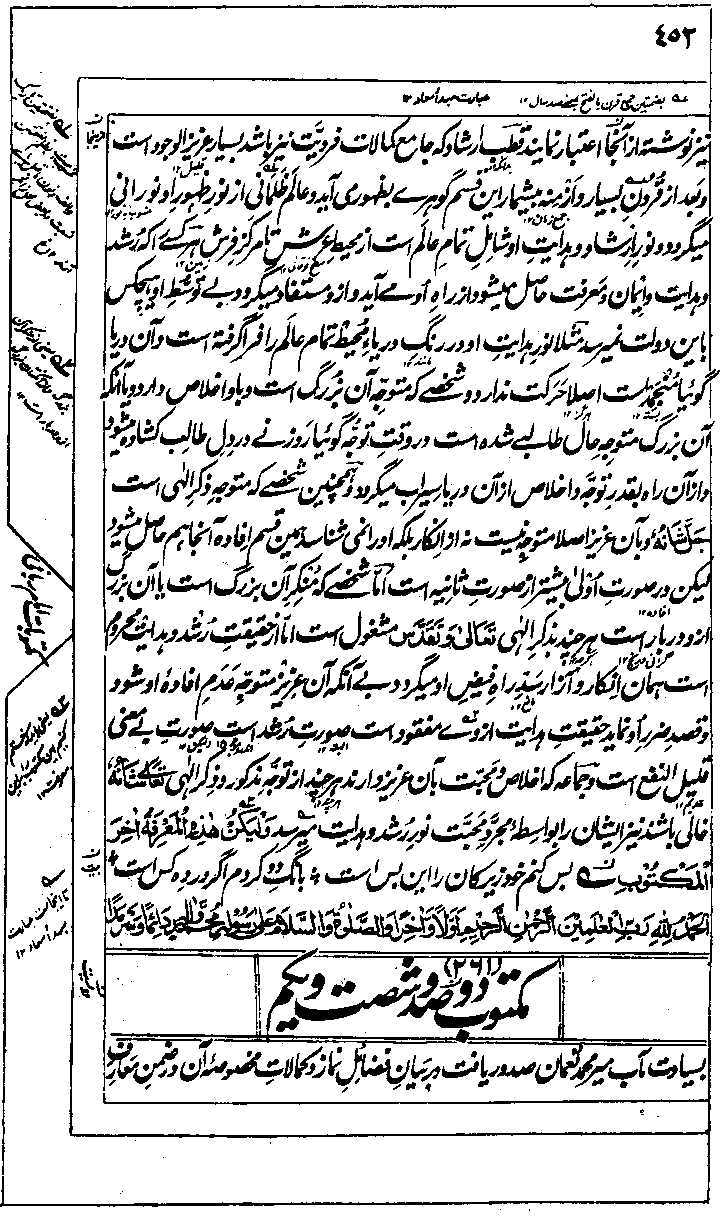 ٤٥٢
نیز نوشته از آنجا اعتبار نمایند قطب ارشاد که جامع کمالات فردیّت نیز باشد بسیار عزیز الوجود است
و بعد از قرون بسیار و ازمنه بیشمار این قسم گوهرے بظهور می آید و عالم ظلمانی از نور ظهور او نورانی
میگردد و نور ارشاد و هدایت او شامل تمام عالم است از محیط عرش تا مرکز فرش هر کسے را که رشد
و هدایت و ایمان و معرفت حاصل میشود از راه او مے آید و ازو مستفاد میگردد بے توسّط او هیچکس
باین دولت نمیرسد مثلا نور هدایت او در رنگ دریاء محیط تمام عالم را فرا گرفته است و آن دریا
گوئیا منجمد است اصلا حرکت ندارد و شخصے که متوجّه آن بزرگ است و با و اخلاص دارد و یا آنکه
آن بزرگ متوجه حال طالبے شده است در وقت توجّه گوئیا روزنے در دل طالب کشاده میشود
و از آن راه بقدر توجّه و اخلاص از آن دریا سیراب میگردد و همچنین شخصے که متوجه ذکر الٰهی است
جلّ شانه و بآن عزیز اصلا متوجه نیست نه از انکار بلکه او را نمی شناسد همین قسم افاده آنجا هم حاصل میشود
لیکن در صورت اولیٰ بیشتر از صورت ثانیه است امّا شخصے که منکر آن بزرگ است یا آن بزرگ
ازو در بار است هر چند بذکر الٰهی تعالیٰ و تقدّس مشغول است امّا از حقیقت رشد و هدایت محروم
است همان انکار و آزار سدّ راه فیض او میگردد بے آنکه آن عزیز متوجّه عدم افادۀ او شود و
و قصد ضرر او نماید حقیقت هدایت از وے مفقود است صورت رشد است صورت بے معنی
قلیل النفع است و جماعه که اخلاص و محبّت بآن عزیز دارند هر چند از توجّه مذکور و ذکر الٰهی تعالیٰ شانه
خالی باشند نیز ایشان را بواسطهٔ مجرّد محبّت نور رشد و هدایت میرسد ولیکن هذه المعرفة اخر
المکتوب بس کنم خود زیرکان را این بس است * بانگ دو کردم اگر در ده کس است *
الحمد لله رب العلمین الرحمن الرحیم اولا و اخرا و الصلوة و السلام علی رسوله محمد و اله دائما و سرمدا
مکتوب دو صد و شصت و یکم (٢٦١)
بسیادت مآب میر محمد نعمان صدور یافت در بیان فضائل نماز و کمالات مخصوصه آن در ضمن معارف
مکتوبات امام ربانی